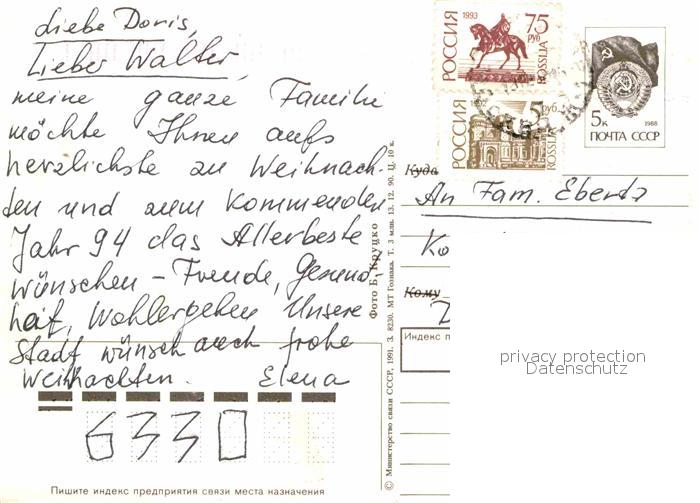 Liebe Doris,
Lieber Walter,
meine ganze Familie
möchte Ihnen aufs
herzlichste zu Weihnach-
ten und zum kommenden
Jahr 94 das Allerbeste
wünschen – Freude, Gesund-
heit, Wohlergehen Unsere
Stadt wünsch auch frohe
Weihnachten. Elena
6330
Пишите индекс предприятия связи места назначения
Фото Б. Круцко
© Министерство связи СССР, 1991. З. 8230. МТ Гознака. Т. 3 млн. 13. 12. 90. Ц. 10 к.
РОССИЯ
1993
75
руб
ROSSIJA
РОССИЯ
5
руб.
ROSSIJA
5к
1988
ПОЧТА СССР
Куда
An Fam. Ebertz
Ko
Кому
D
Индекс п
privacy protection
Datenschutz